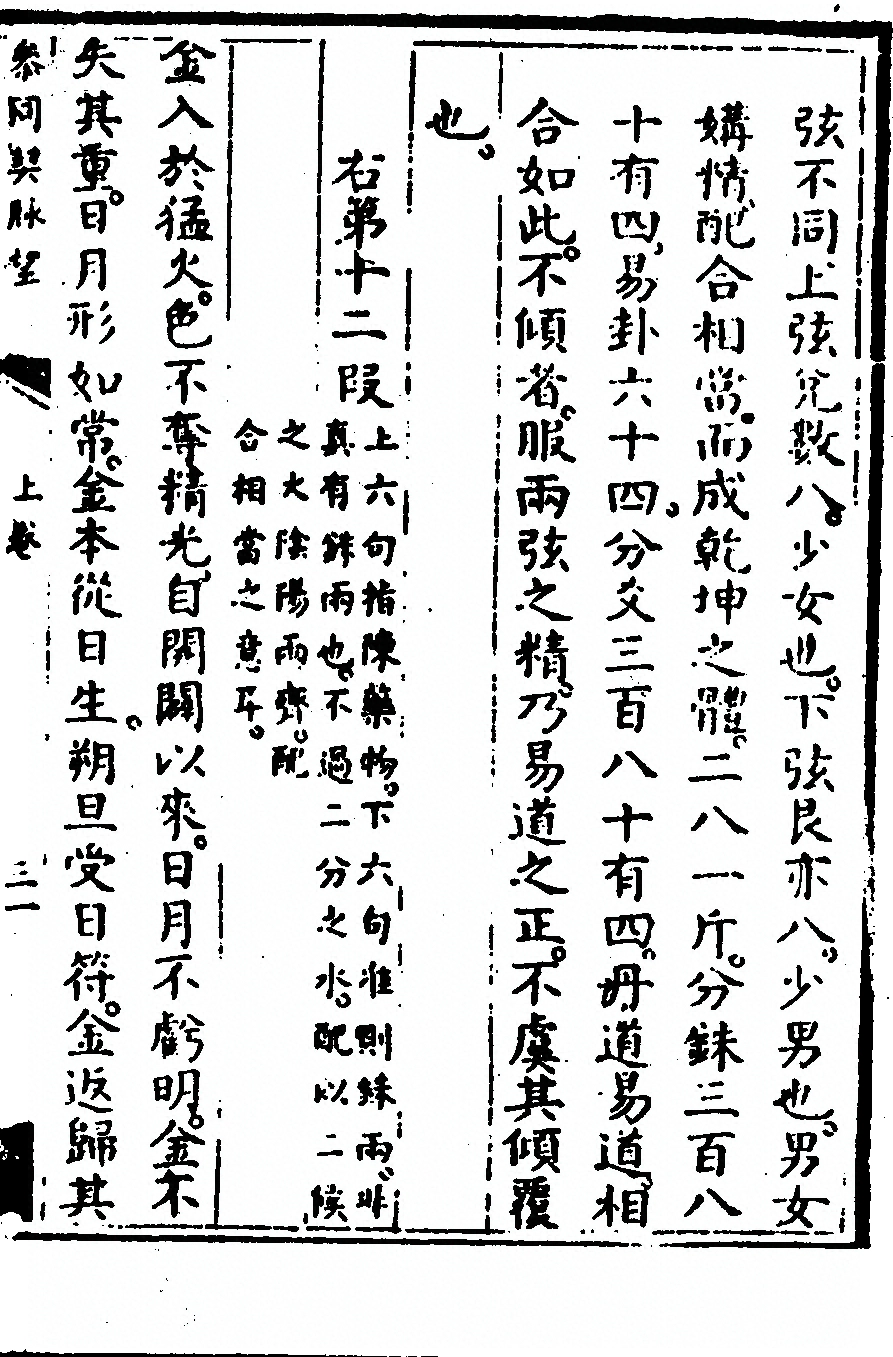 弦不同上弦兌數八。少女也。下弦艮亦八。少男也。男女
媾情、配合相當。而成乾坤之體。二八一斤。分銖三百八
十有四、易卦六十四。分爻三百八十有四。丹道易道、相
合如此。不傾者。服兩弦之精。乃易道之正。不虞其傾覆
也。
右第十二段
上六句指陳藥物。下六句准則銖兩。非
真有銖兩也。不過二分之水。配以二候
之火陰陽兩齊。配
合相當之意耳。
金入於猛火。色不奪精光、自開闢以來。日月不虧明。金不
失其重。日月形如常。金本從日生。朔旦受日符。金返歸其
參同契脉望
上卷
三一